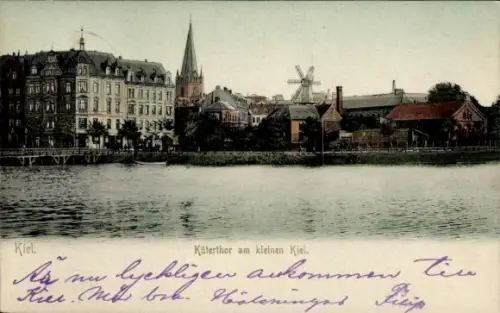 Kiel.
Küterthor am kleinen Kiel.
Är nu lyckligen ankommen till
Kiel. Mår bra. Hälsningar
Filip